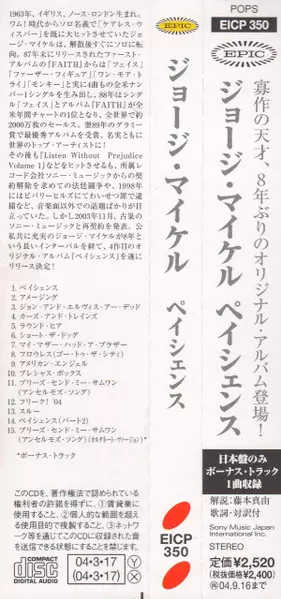 1963年、イギリス、ノース・ロンドン生まれ。
ワム！時代からソロ名義で「ケアレス・ウ
ィスパー」を既に大ヒットさせていたジョー
ジ・マイケルは、解散後すぐにソロに転
向。87年末にリリースされたファースト・
アルバムの『FAITH』からは「フェイス」
「ファーザー・フィギュア」「ワン・モア・ト
ライ」「モンキー」と実に4曲もの全米ナン
バー1シングルを生み出し、88年はシング
ル「フェイス」とアルバム『FAITH』が全
米年間チャートの1位となり、全世界で約
2000万枚のセールス。翌89年のグラミー
賞で最優秀アルバムを受賞、名実ともに
世界のトップ・アーティストに！
その後も『Listen Without Prejudice
Volume 1』などをヒットさせるも、所属レ
コード会社ソニー・ミュージックからの契
約解除を求めての法廷闘争や、1998年
にはビバリーヒルズにてわいせつ罪で逮
捕など、音楽面以外での話題ばかりが目
立っていた。しかし2003年11月、古巣の
ソニー・ミュージックと再契約を発表、公
私共に充実のジョージ・マイケルが8年と
いう長いインターバルを経て、4作目のオ
リジナル・アルバム『ペイシェンス』を遂に
リリース決定！
1. ペイシェンス
2. アメージング
3. ジョン・アンド・エルヴィス・アー・デッド
4. カーズ・アンド・トレインズ
5. ラウンド・ヒア
6. ショート・ザ・ドッグ
7. マイ・マザー・ハッド・ア・ブラザー
8. フロウレス(ゴー・トゥ・ザ・シティ)
9. アメリカン・エンジェル
10. プレシャス・ボックス
11. プリーズ・センド・ミー・サムワン
(アンセルモズ・ソング)
12. フリーク！'04
13. スルー
14. ペイシェンス(パート2)
15. プリーズ・センド・ミー・サムワン
(アンセルモズ・ソング)(オルタネート・ヴァージョン)*
*ボーナス・トラック
このCDを、著作権法で認められている
権利者の許諾を得ずに、①賃貸業に
使用すること、②個人的な範囲を超え
る使用目的で複製すること、③ネットワ
ーク等を通じてこのCDに収録された音
を送信できる状態にすることを禁じます。
COMPACT
disc
DIGITAL AUDIO
04・3・17 Y
04・3・17 X
EPIC
ジョージ・マイケル ペイシェンス
EICP
350
POPS
EICP 350
EPIC
寡作の天才、8年ぶりのオリジナル・アルバム登場！
ジョージ・マイケル ペイシェンス
日本盤のみ
ボーナス・トラック
1曲収録
解説：藤本真由
歌詞・対訳付
Sony Music Japan
International Inc.
STEREO
定価¥2,520
(税抜価格¥2,400)
(04.9.16まで)